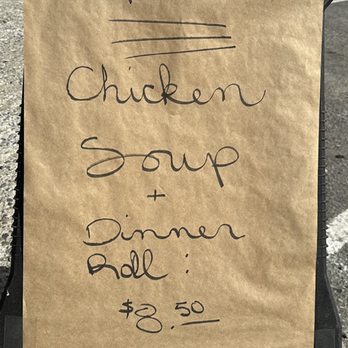 Chicken
Soup
+
Dinner
Roll :
$8.50